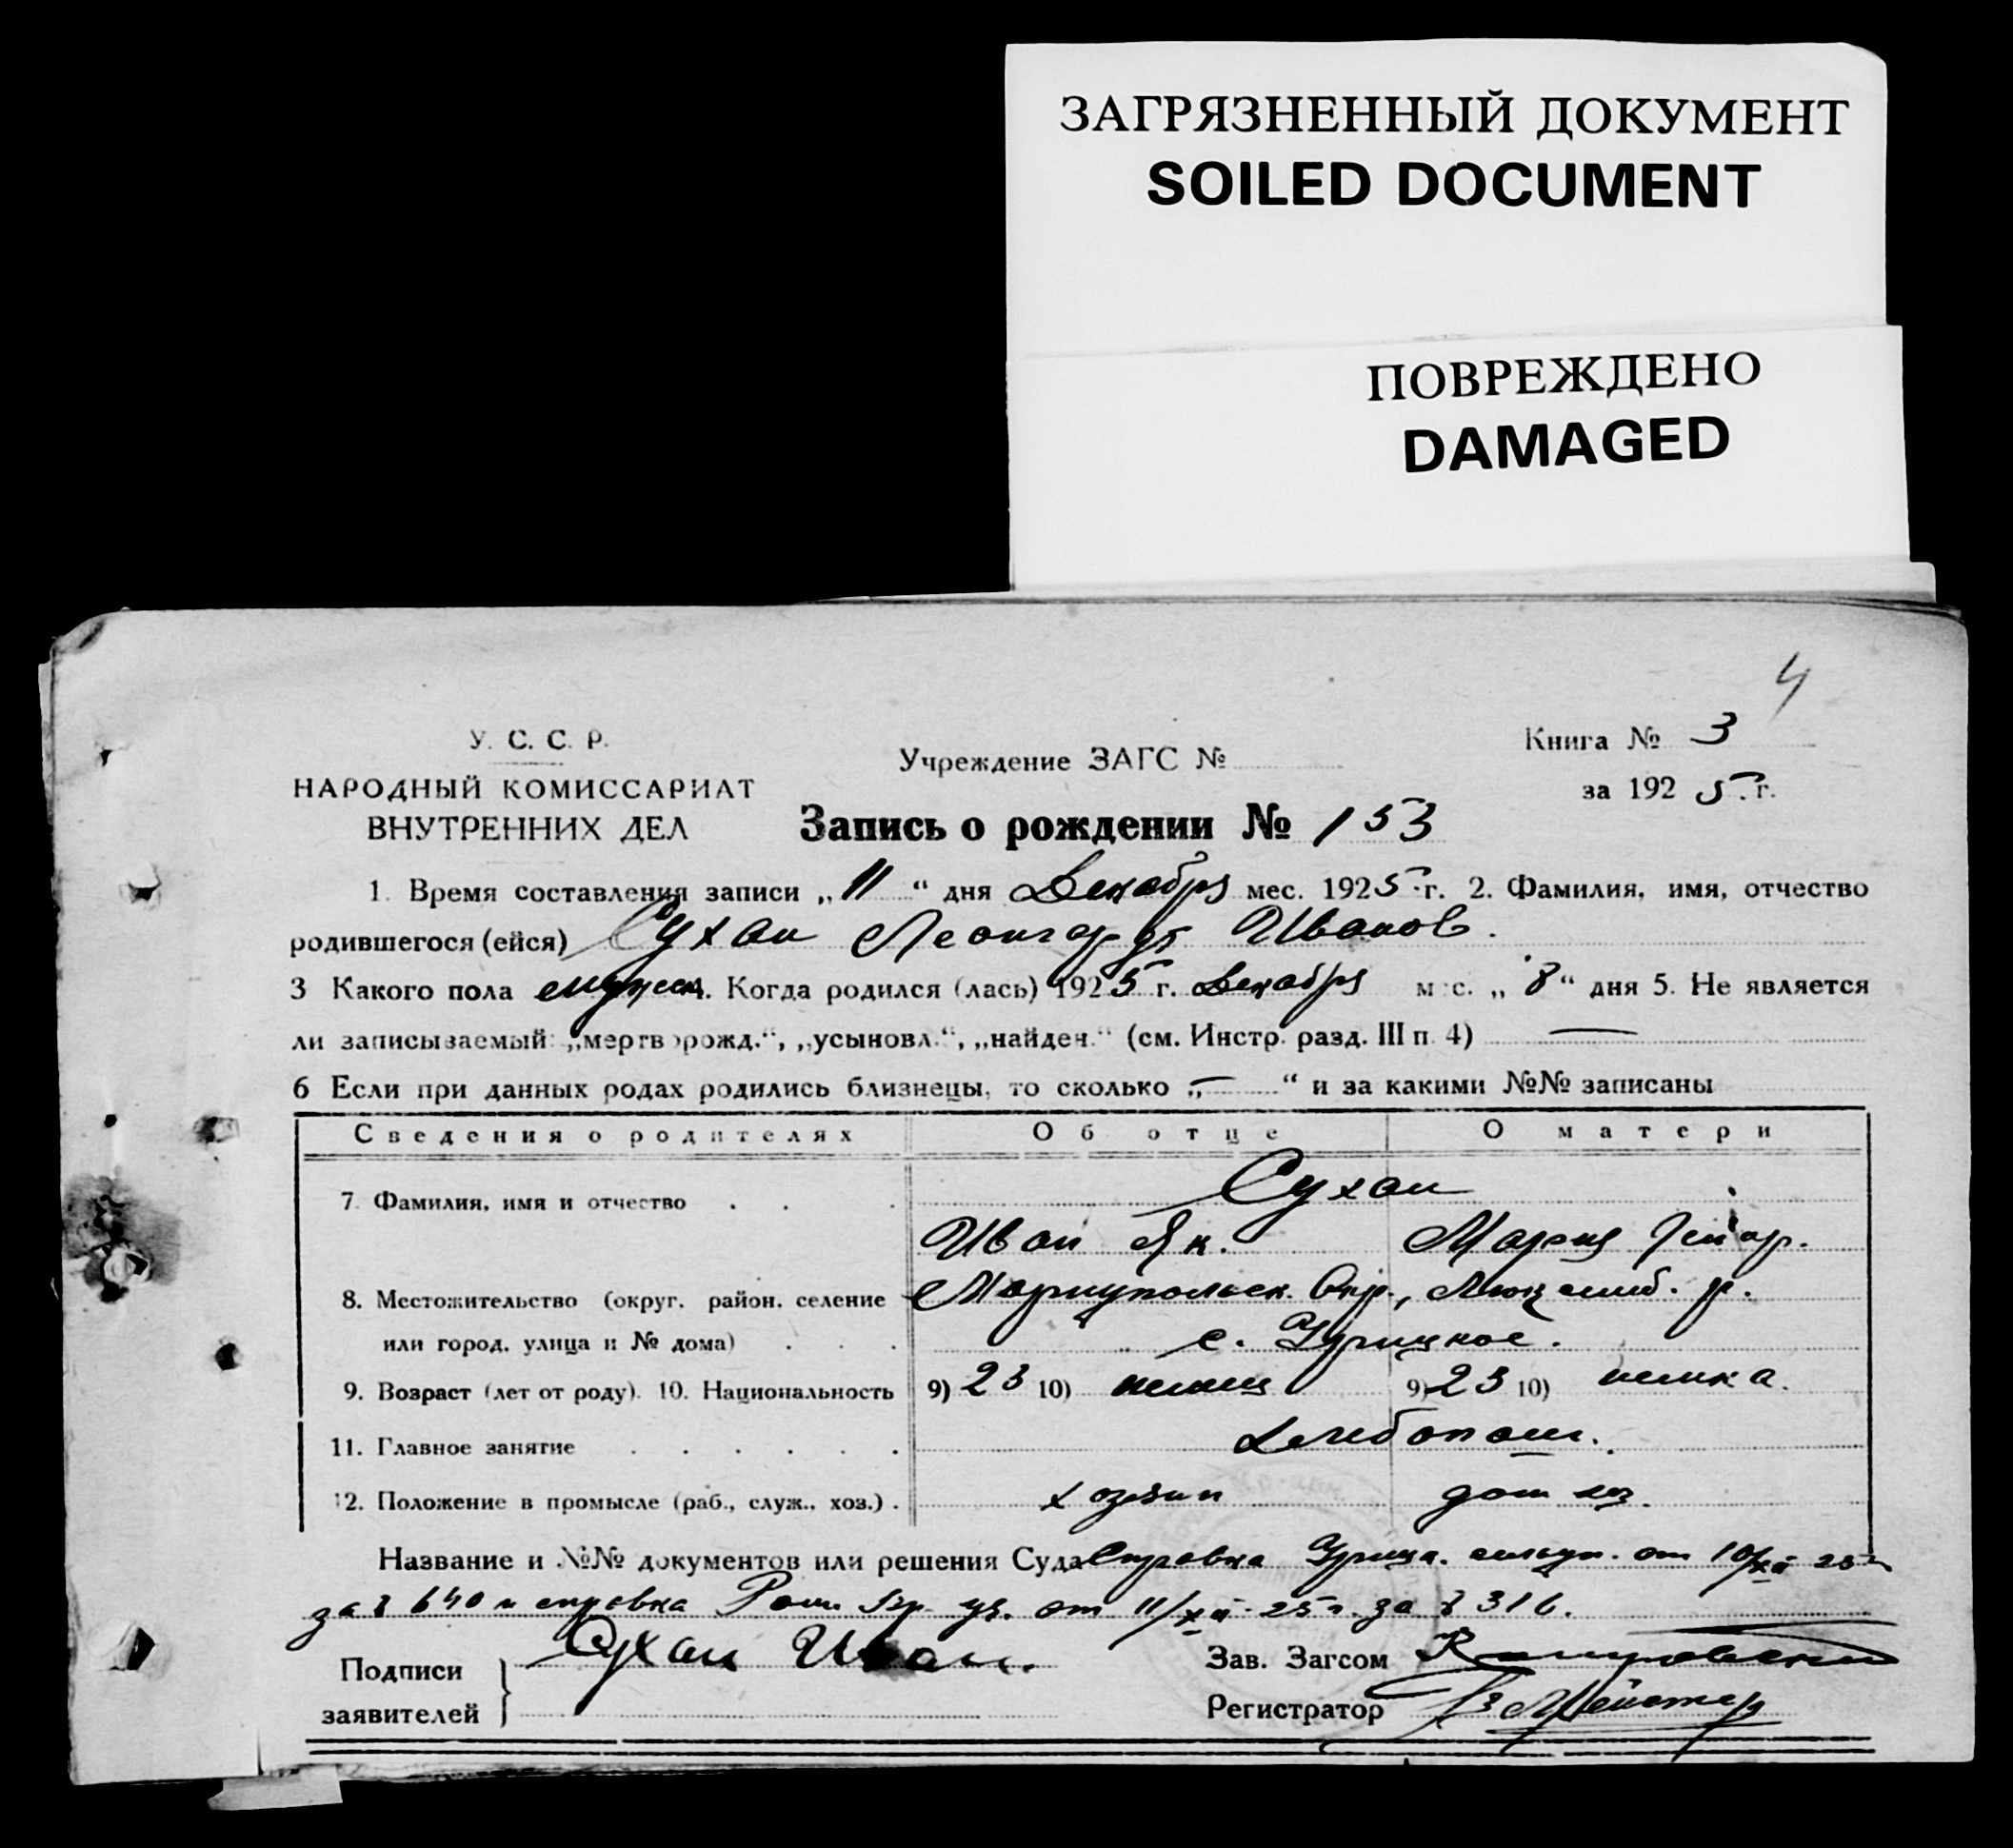 ЗАГРЯЗНЕННЫЙ ДОКУМЕНТ
SOILED DOCUMENT
ПОВРЕЖДЕНО
DAMAGED
4
У. С. С. Р.
НАРОДНЫЙ КОМИССАРИАТ
ВНУТРЕННИХ ДЕЛ
Учреждение ЗАГС №
Книга № 3
за 192 5 г.
Запись о рождении № 153
1. Время составления записи „ 11 “ дня Декабря мес. 192 5 г. 2. Фамилия, имя, отчество
родившегося (ейся) Сухан Леонгардт Иванов.
3 Какого пола мужск. 4. Когда родился (лась) 192 5 г. Декабря мес. „ 8 “ дня 5. Не является
ли записываемый: „мертворожд.“, „усыновл.“, „найден.“ (см. Инстр. разд. III п. 4) —
6 Если при данных родах родились близнецы, то сколько „ — “ и за какими №№ записаны
Сведения о родителях Об отце О матери
7. Фамилия, имя и отчество Сухан
Иван Як. Мария
8. Местожительство (округ, район, селение Мариупольск. Окр., Люксемб. р.
или город, улица и № дома) с. Урицкое.
9. Возраст (лет от роду). 10. Национальность 9) 23 10) немец 9) 23 10) немка.
11. Главное занятие хлебопаш.
12. Положение в промысле (раб., служ., хоз.) хозяин дом хоз.
Название и №№ документов или решения Суда Справка Урицк. от 10/XII 25 г.
за № 640 и справка от 11/XII 25 г. за № 316.
Подписи заявителей } Сухан Иван.
Зав. Загсом
Регистратор